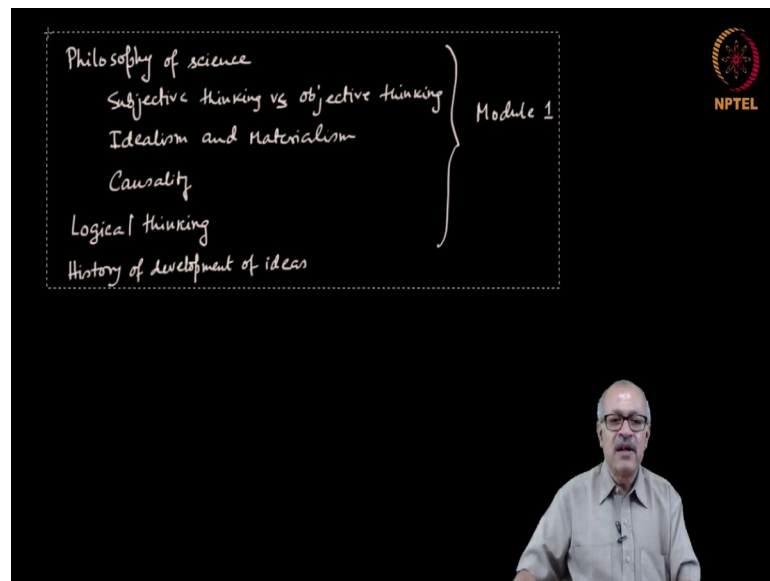 Philosophy of science
Subjective thinking vs objective thinking
Idealism and Materialism
Causality
Logical thinking
History of development of ideas
Module 1
NPTEL